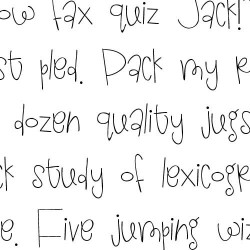 ow fax quiz Jack!
st pled. Pack my r
dozen quality jugs
ck study of lexicogr
e. Five jumping wiz